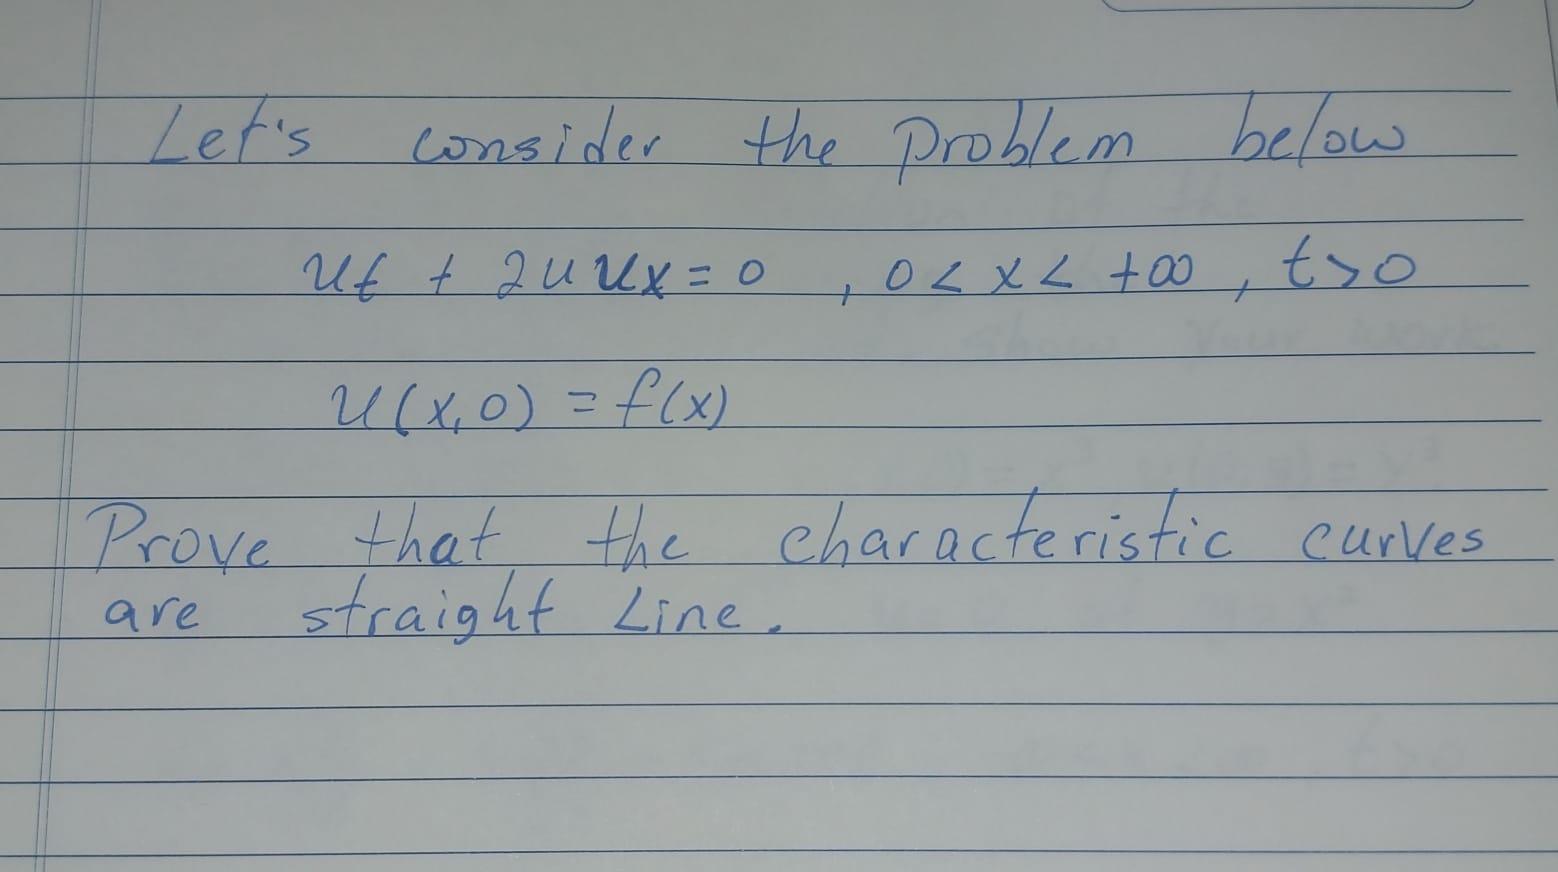 Let's consider the problem below
ut + 2u ux = 0 , 0 < x < +∞ , t > 0
u(x,0) = f(x)
Prove that the characteristic curves
are straight Line.